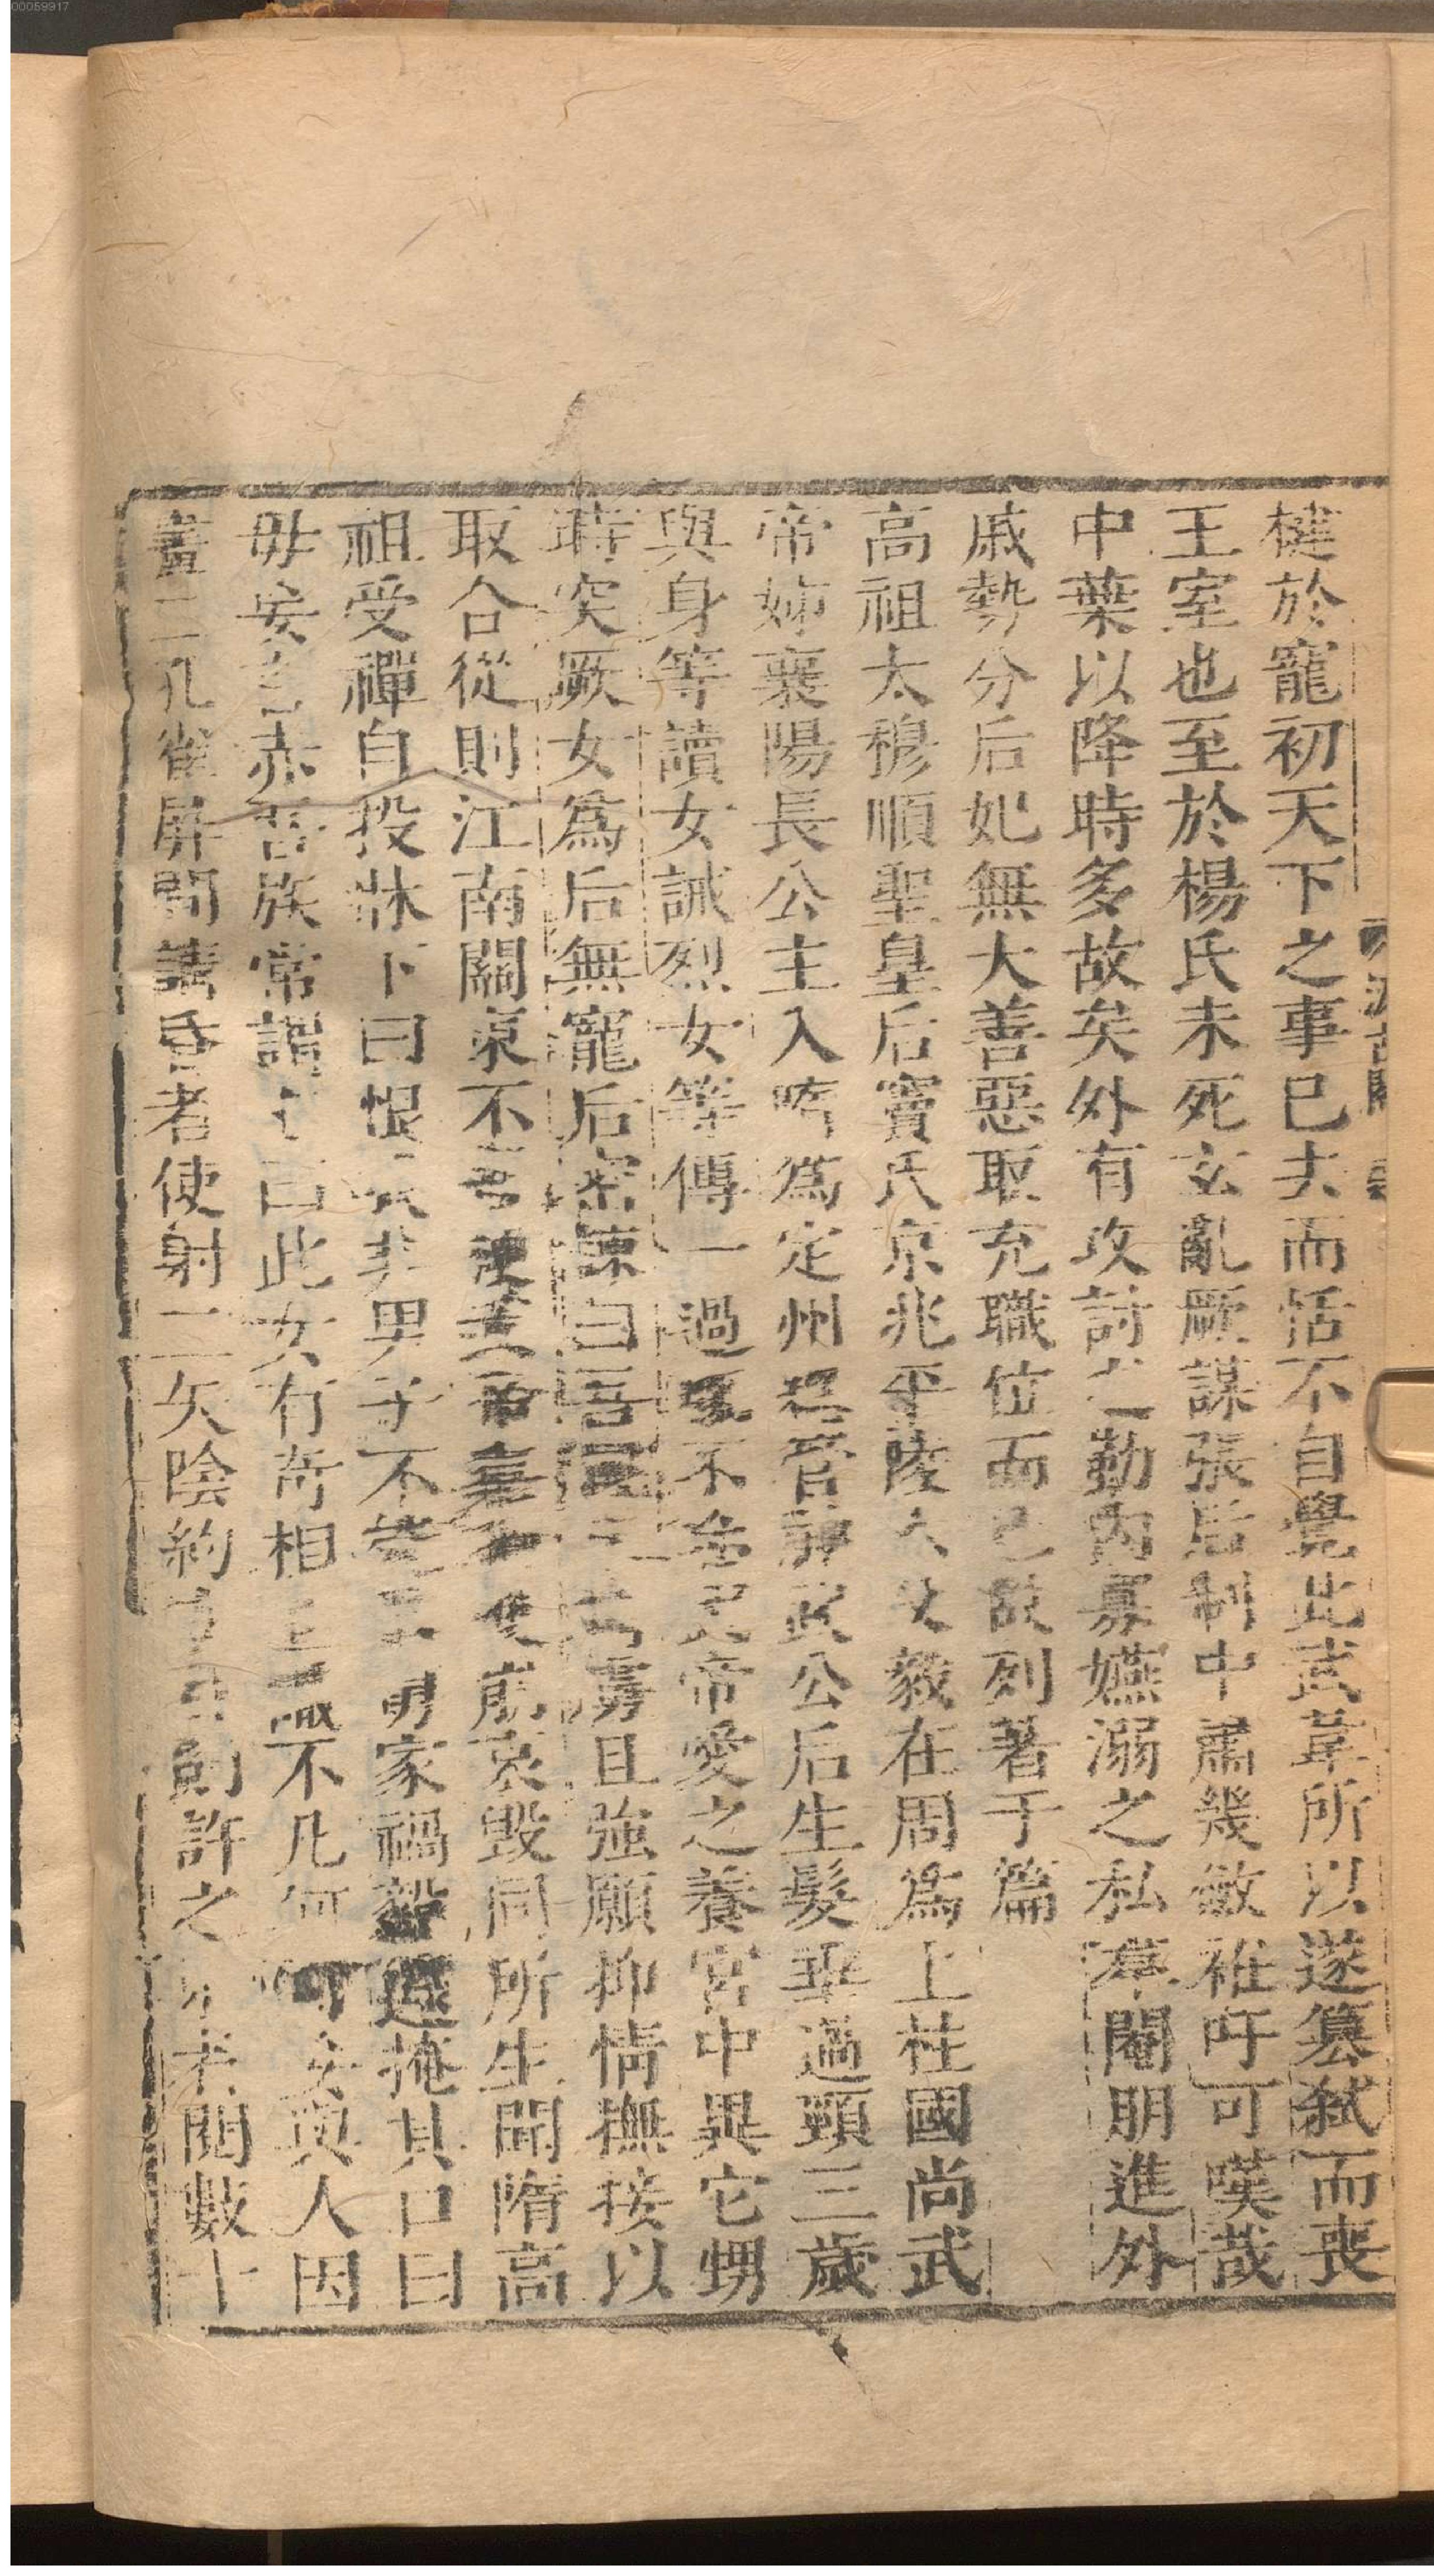 00059917
楗於寵初天下之事已去而恬不自覺此武韋所以遂簒弑而喪
王室也至於楊氏未死玄亂厥謀張后制中肅幾斂袵吁可嘆哉
中葉以降時多故矣外有攻討之勤內寡嬿溺之私羣閹朋進外
戚勢分后妃無大善惡取充職位而已故列著于篇
高祖太穆順聖皇后竇氏京兆平陵人父毅在周爲上柱國尚武
帝姊襄陽長公主入隋爲定州總管神武公后生髮垂過頸三歲
與身等讀女誡烈女等傳一過輒不忘武帝愛之養宮中異它甥
時突厥女爲后無寵后密諫曰吾國未靖虜且強願抑情撫接以
取合從則江南關東不吾梗武帝嘉納及崩哀毁同所生聞隋高
祖受禪自投牀下曰恨我非男子不能救舅家禍毅遽掩其口曰
毋妄言赤吾族常謂主曰此女有奇相且識不凡何可妄與人因
畫二孔雀屏間請昏者使射二矢陰約中目則許之射者閱數十